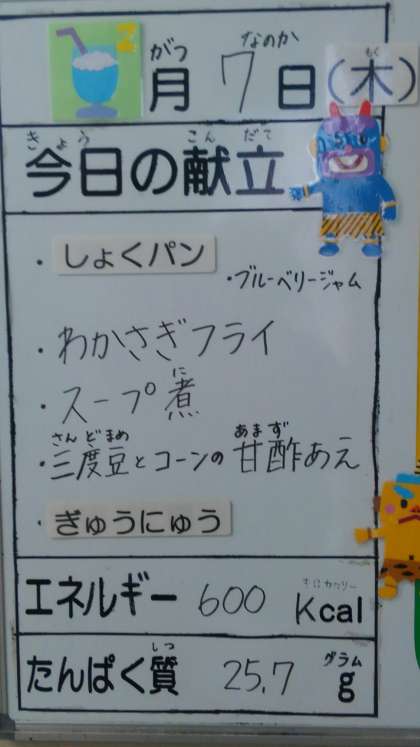 2
がつ なのか もく
月 7 日 (木)
きょう こんだて
今日の献立
・しょくパン
・ブルーベリージャム
・わかさぎフライ
に
・スープ煮
さんどまめ あまず
・三度豆とコーンの甘酢あえ
・ぎゅうにゅう
エネルギー 600 Kcal
しつ グラム
たんぱく質 25.7 g